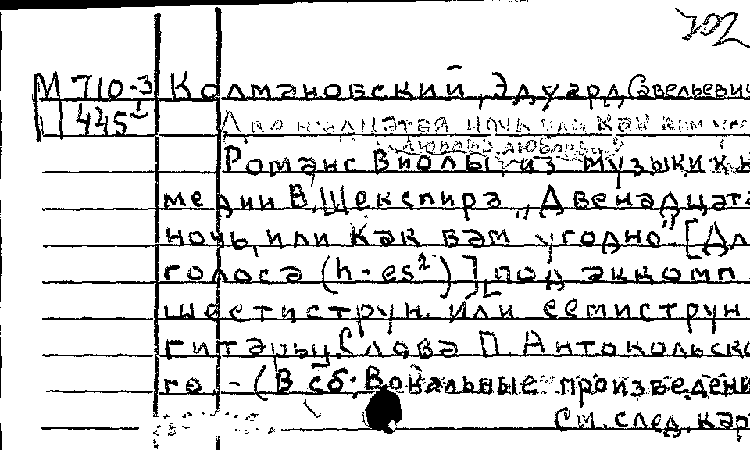 702
М 710-3 Колмановский, Эдуард Савельевич
425 Двенадцатая ночь или Как вам
Романс Виолы из музыки к к
медии В. Шекспира „Двенадцата
ночь, или Как вам угодно" [Дл
голоса (h - es²)] под аккомп
шестиструн. или семиструн
гитары. Слова П. Антокольско
го. - (В сб: Вокальные произведени
См. след. кар